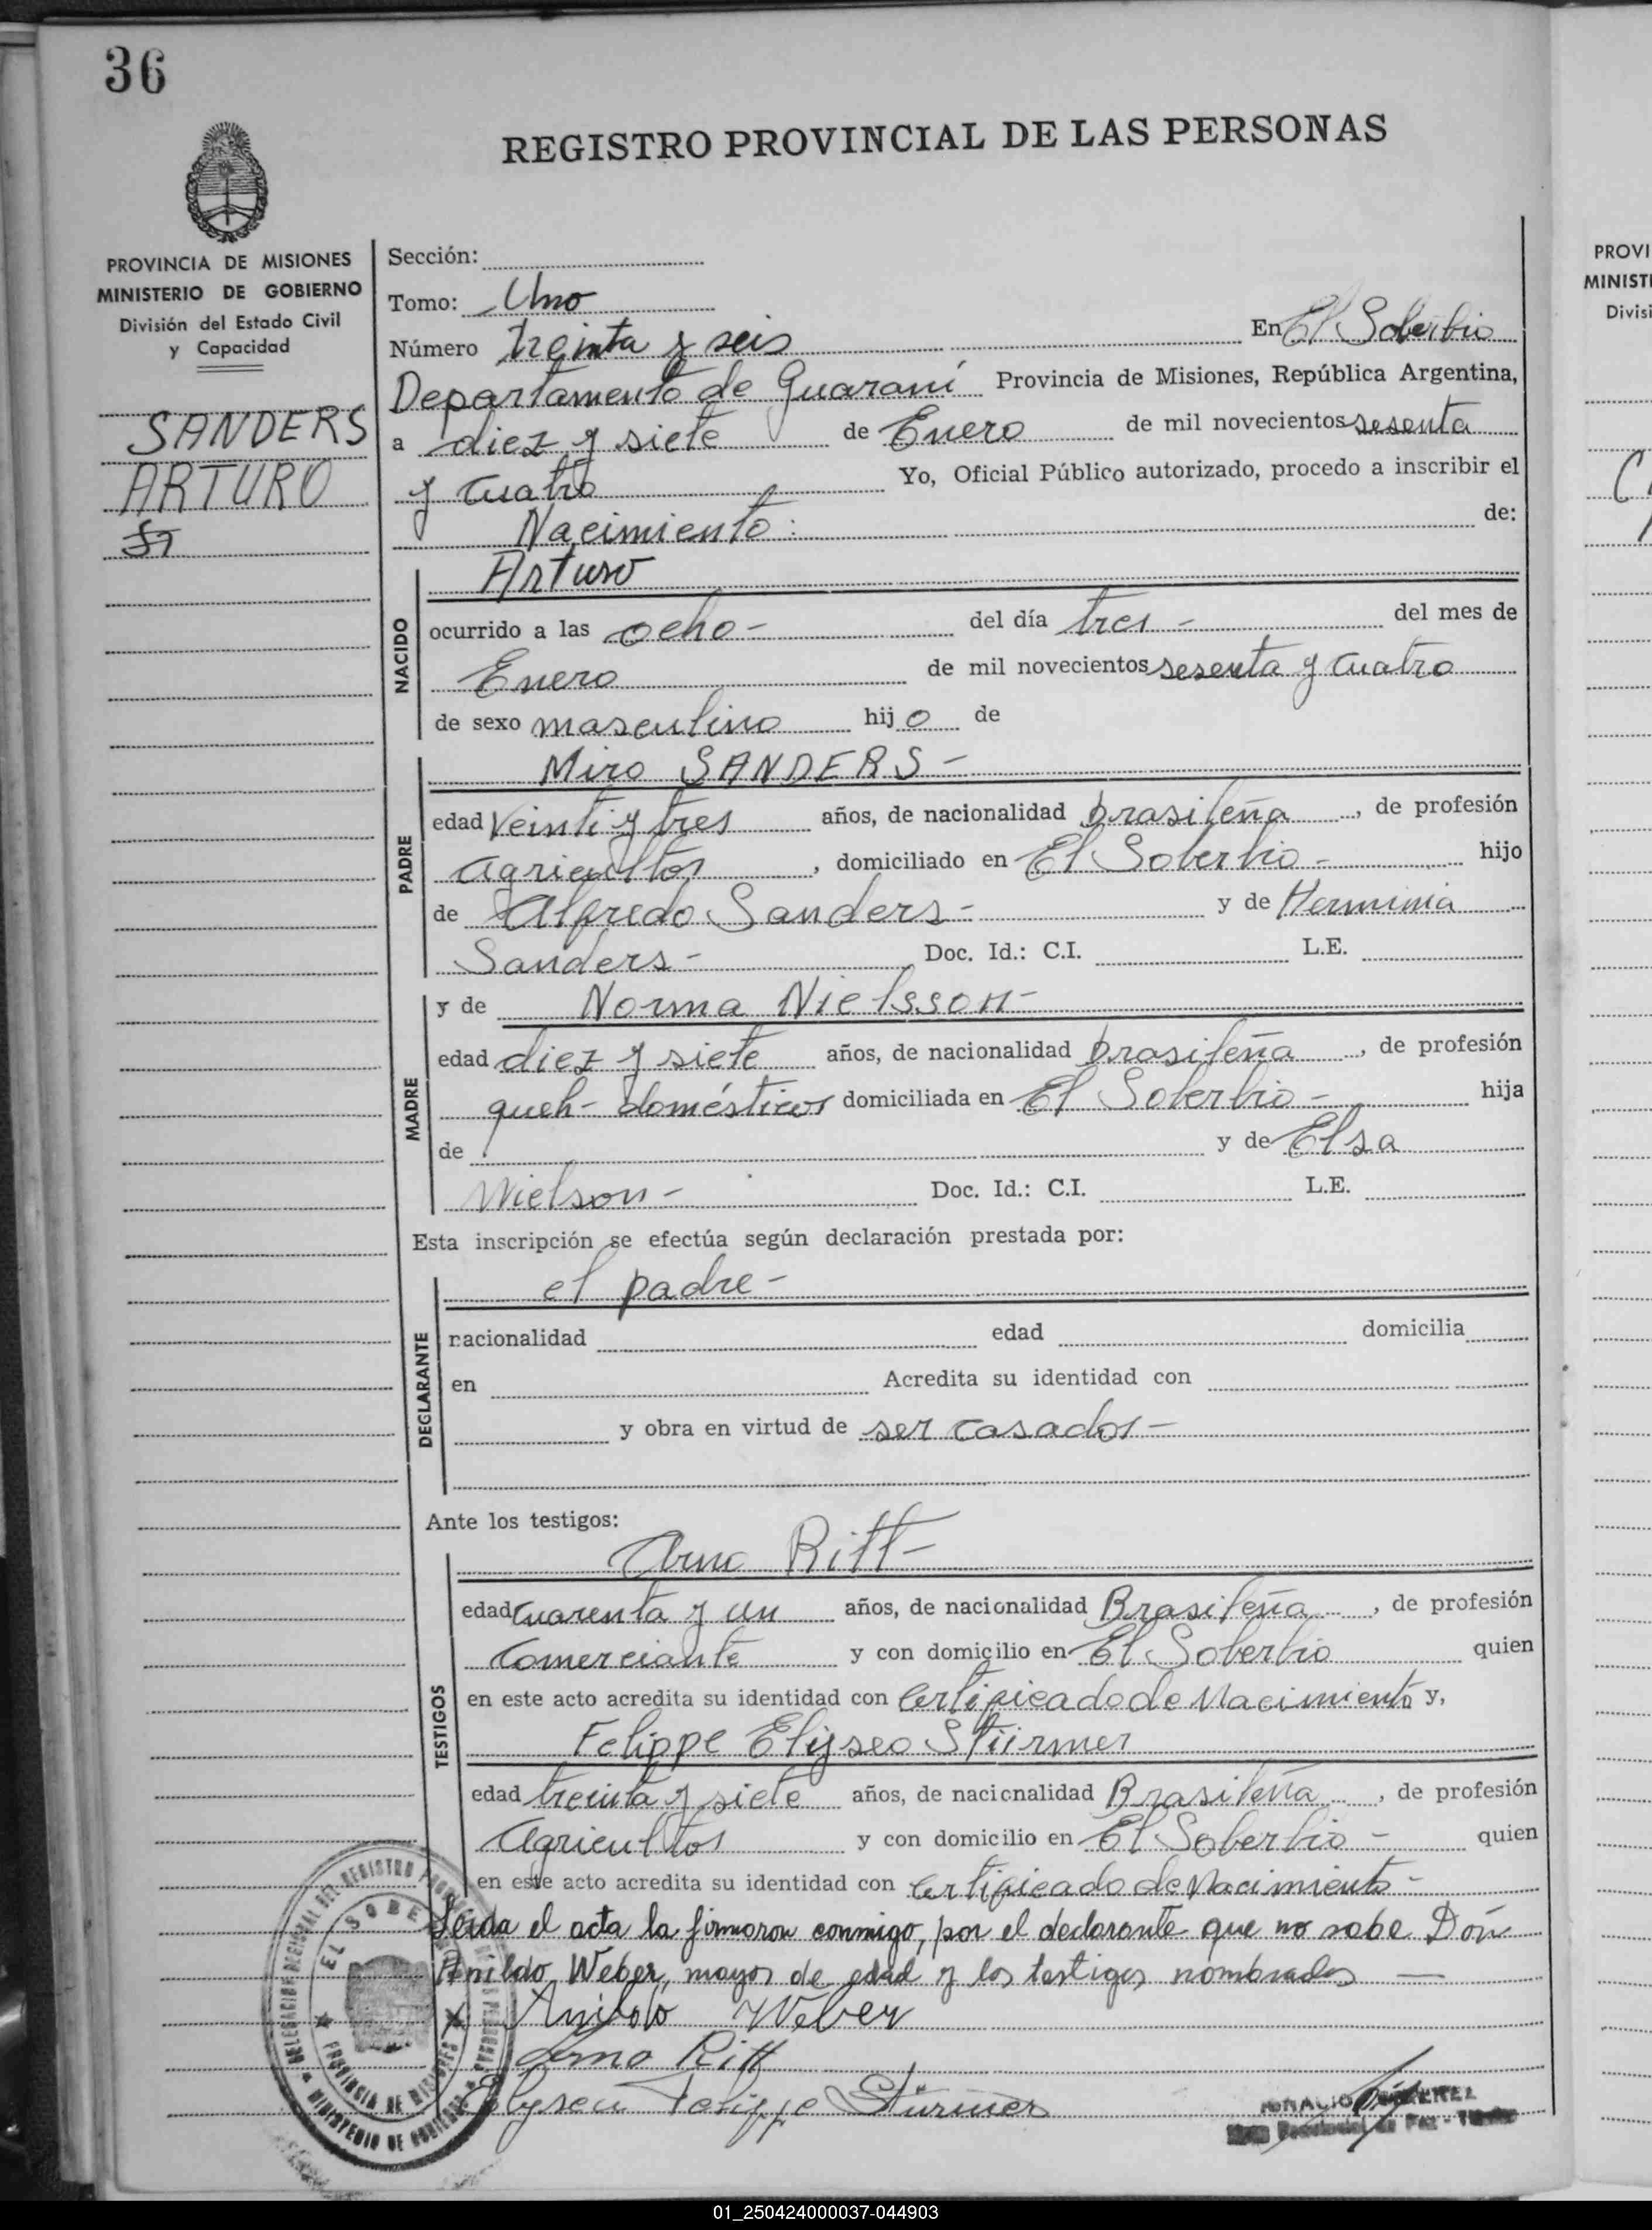 36
REGISTRO PROVINCIAL DE LAS PERSONAS
PROVINCIA DE MISIONES
MINISTERIO DE GOBIERNO
División del Estado Civil
y Capacidad
SANDERS
ARTURO
Sección:
Tomo: Uno
Número treinta y seis En El Soberbio
Departamento de Guaraní Provincia de Misiones, República Argentina,
a diez y siete de Enero de mil novecientos sesenta
y cuatro Yo, Oficial Público autorizado, procedo a inscribir el
Nacimiento: de:
NACIDO
Arturo
ocurrido a las ocho - del día tres - del mes de
Enero de mil novecientos sesenta y cuatro
de sexo masculino hijo de
PADRE
Miro SANDERS -
edad veinti y tres años, de nacionalidad brasileña, de profesión
agricultor, domiciliado en El Soberbio - hijo
de Alfredo Sanders - y de Herminia
Sanders - Doc. Id.: C.I. L.E.
MADRE
y de Norma Nielsson -
edad diez y siete años, de nacionalidad brasileña, de profesión
queh- domésticos domiciliada en El Soberbio - hija
de y de Elsa
Nielson - Doc. Id.: C.I. L.E.
Esta inscripción se efectúa según declaración prestada por:
DECLARANTE
el padre -
nacionalidad edad domicilia
en Acredita su identidad con
y obra en virtud de ser casados -
Ante los testigos:
TESTIGOS
Arno Ritt -
edad cuarenta y un años, de nacionalidad Brasileña, de profesión
Comerciante y con domicilio en El Soberbio quien
en este acto acredita su identidad con Certificado de Nacimiento y,
Felippe Elyseo Stürmer
edad treinta y siete años, de nacionalidad Brasileña, de profesión
Agricultor y con domicilio en El Soberbio - quien
en este acto acredita su identidad con Certificado de Nacimiento -
Leida el acta la firmaron conmigo, por el declarante que no sabe Don
Anildo Weber, mayor de edad y los testigos nombrados —
x Anildo Weber
Arno Ritt
Elyseu Felippe Stürmer
EL SOBERBIO
PROVINCIA DE MISIONES
MINISTERIO DE GOBIERNO
PROVI
MINISTE
Divisi
01_250424000037-044903